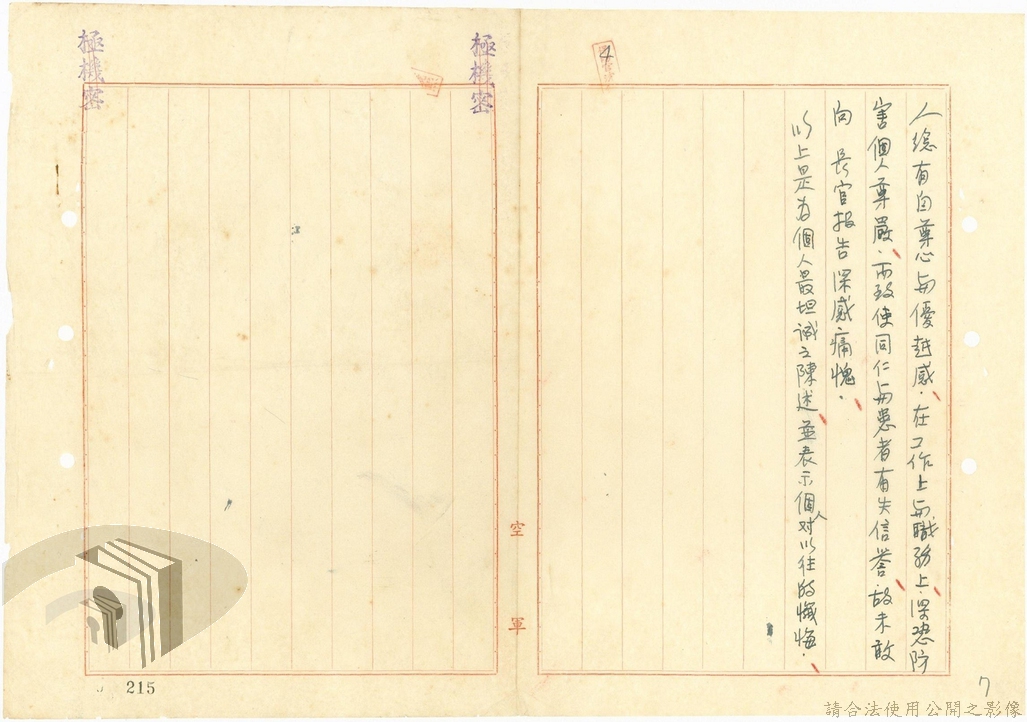 4
人總有自尊心與優越感．在工作上與職務上．深恐防
害個人尊嚴．而致使同仁與患者有失信譽．故未敢
向　長官报告深感痛愧．
以上是为個人最坦誠之陳述並表示個人对以往的懺悔．
空軍
極機密
極機密
215
7
請合法使用公開之影像